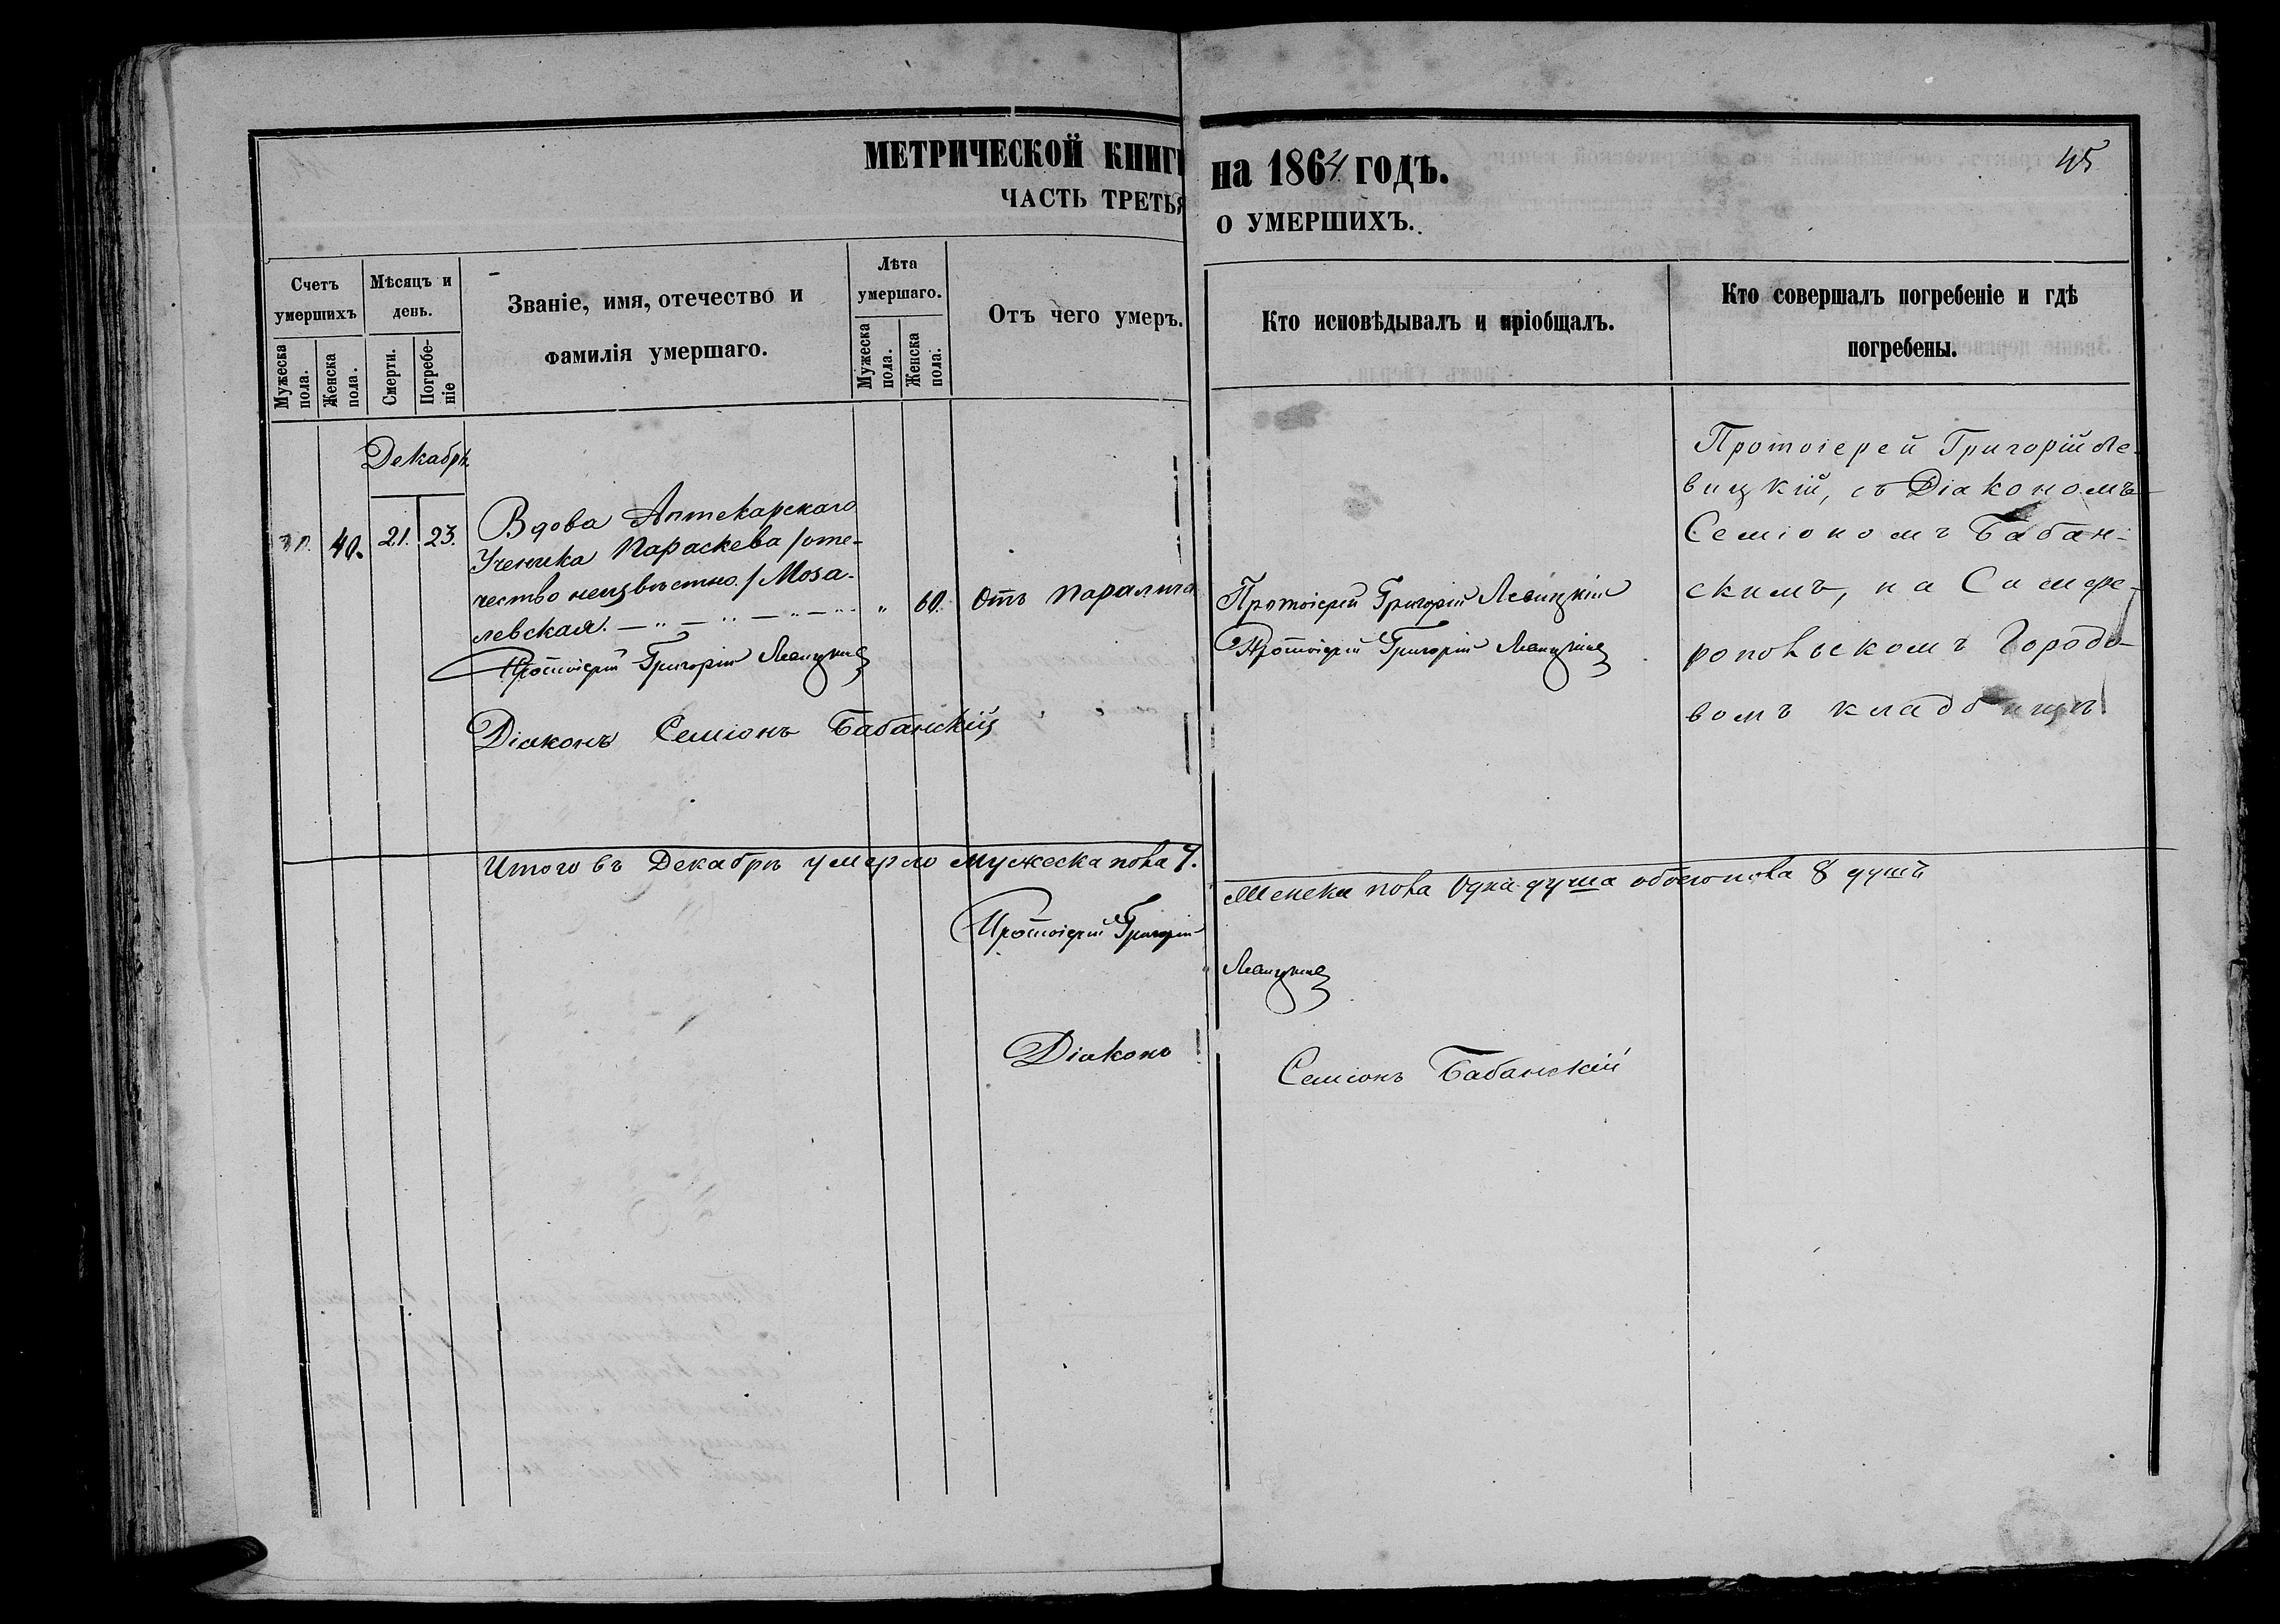 МЕТРИЧЕСКОЙ КНИГИ на 1864 ГОДЪ.
45
ЧАСТЬ ТРЕТЬЯ О УМЕРШИХЪ.
Счетъ умершихъ
Мужеска пола.
Женска пола.
Мѣсяцъ и день.
Смерти.
Погребеніе
Званіе, имя, отечество и фамилія умершаго.
Лѣта умершаго.
Мужеска пола.
Женска пола.
Отъ чего умеръ.
Кто исповѣдывалъ и пріобщалъ.
Кто совершалъ погребеніе и гдѣ погребены.
Декабрь
40. 21. 23.
Вдова Аптекарскаго
Ученика Параскева /оте-
чество неизвѣстно./ Моза-
левская. — „ — „ — „ — „
„ 60. Отъ паралича
Протоіерей Григорій Левицкій
Діаконъ Семіонъ Бабанскій
Протоіерей Григорій Левицкій
Протоіерей Григорій Левицкій
Протоіерей Григорій Ле-
вицкій, съ Діакономъ
Семіономъ Бабан-
скимъ, на Симфе-
ропольскомъ Городо-
вомъ кладбищѣ.
Итого въ Декабрѣ умерло мужеска пола 7.
Женска пола Одна душа обоего пола 8 душъ
Протоіерей Григорій
Левицкій
Діаконъ Семіонъ Бабанскій